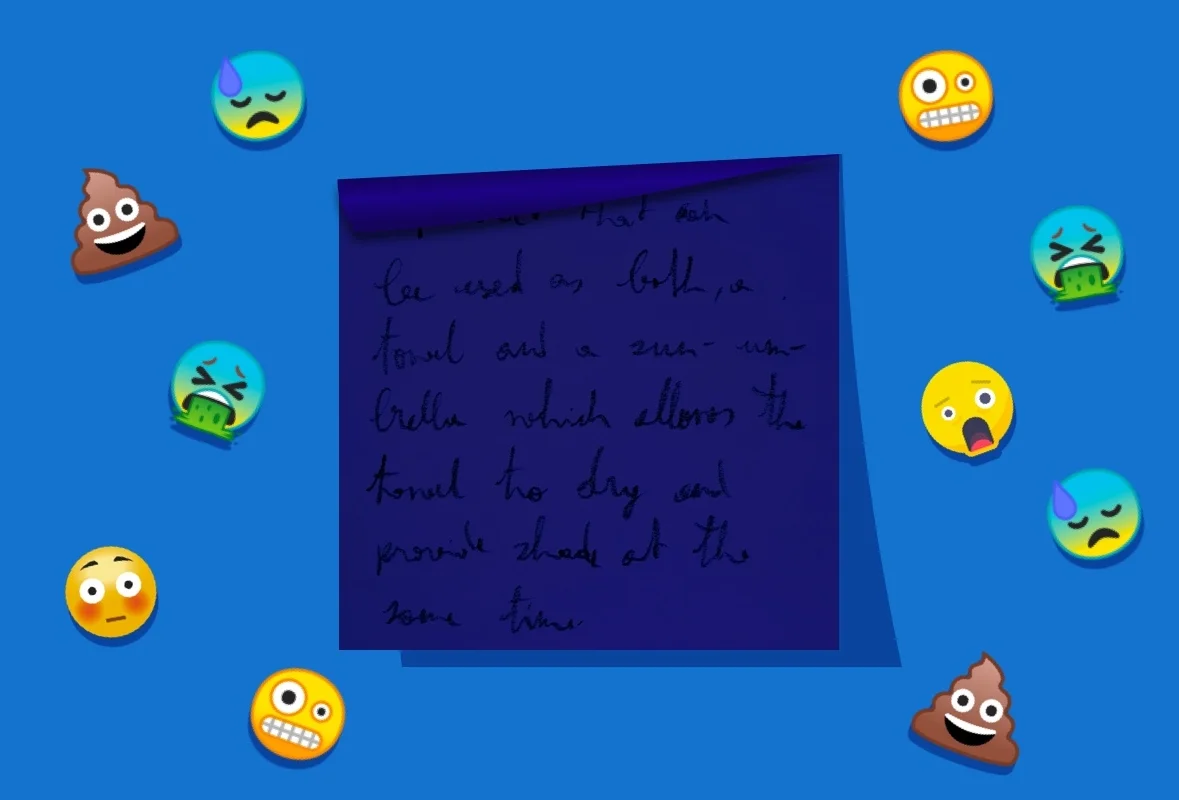 that can
be used as both, a
towel and a sun-um-
brella which allows the
towel to dry and
provide shade at the
same time